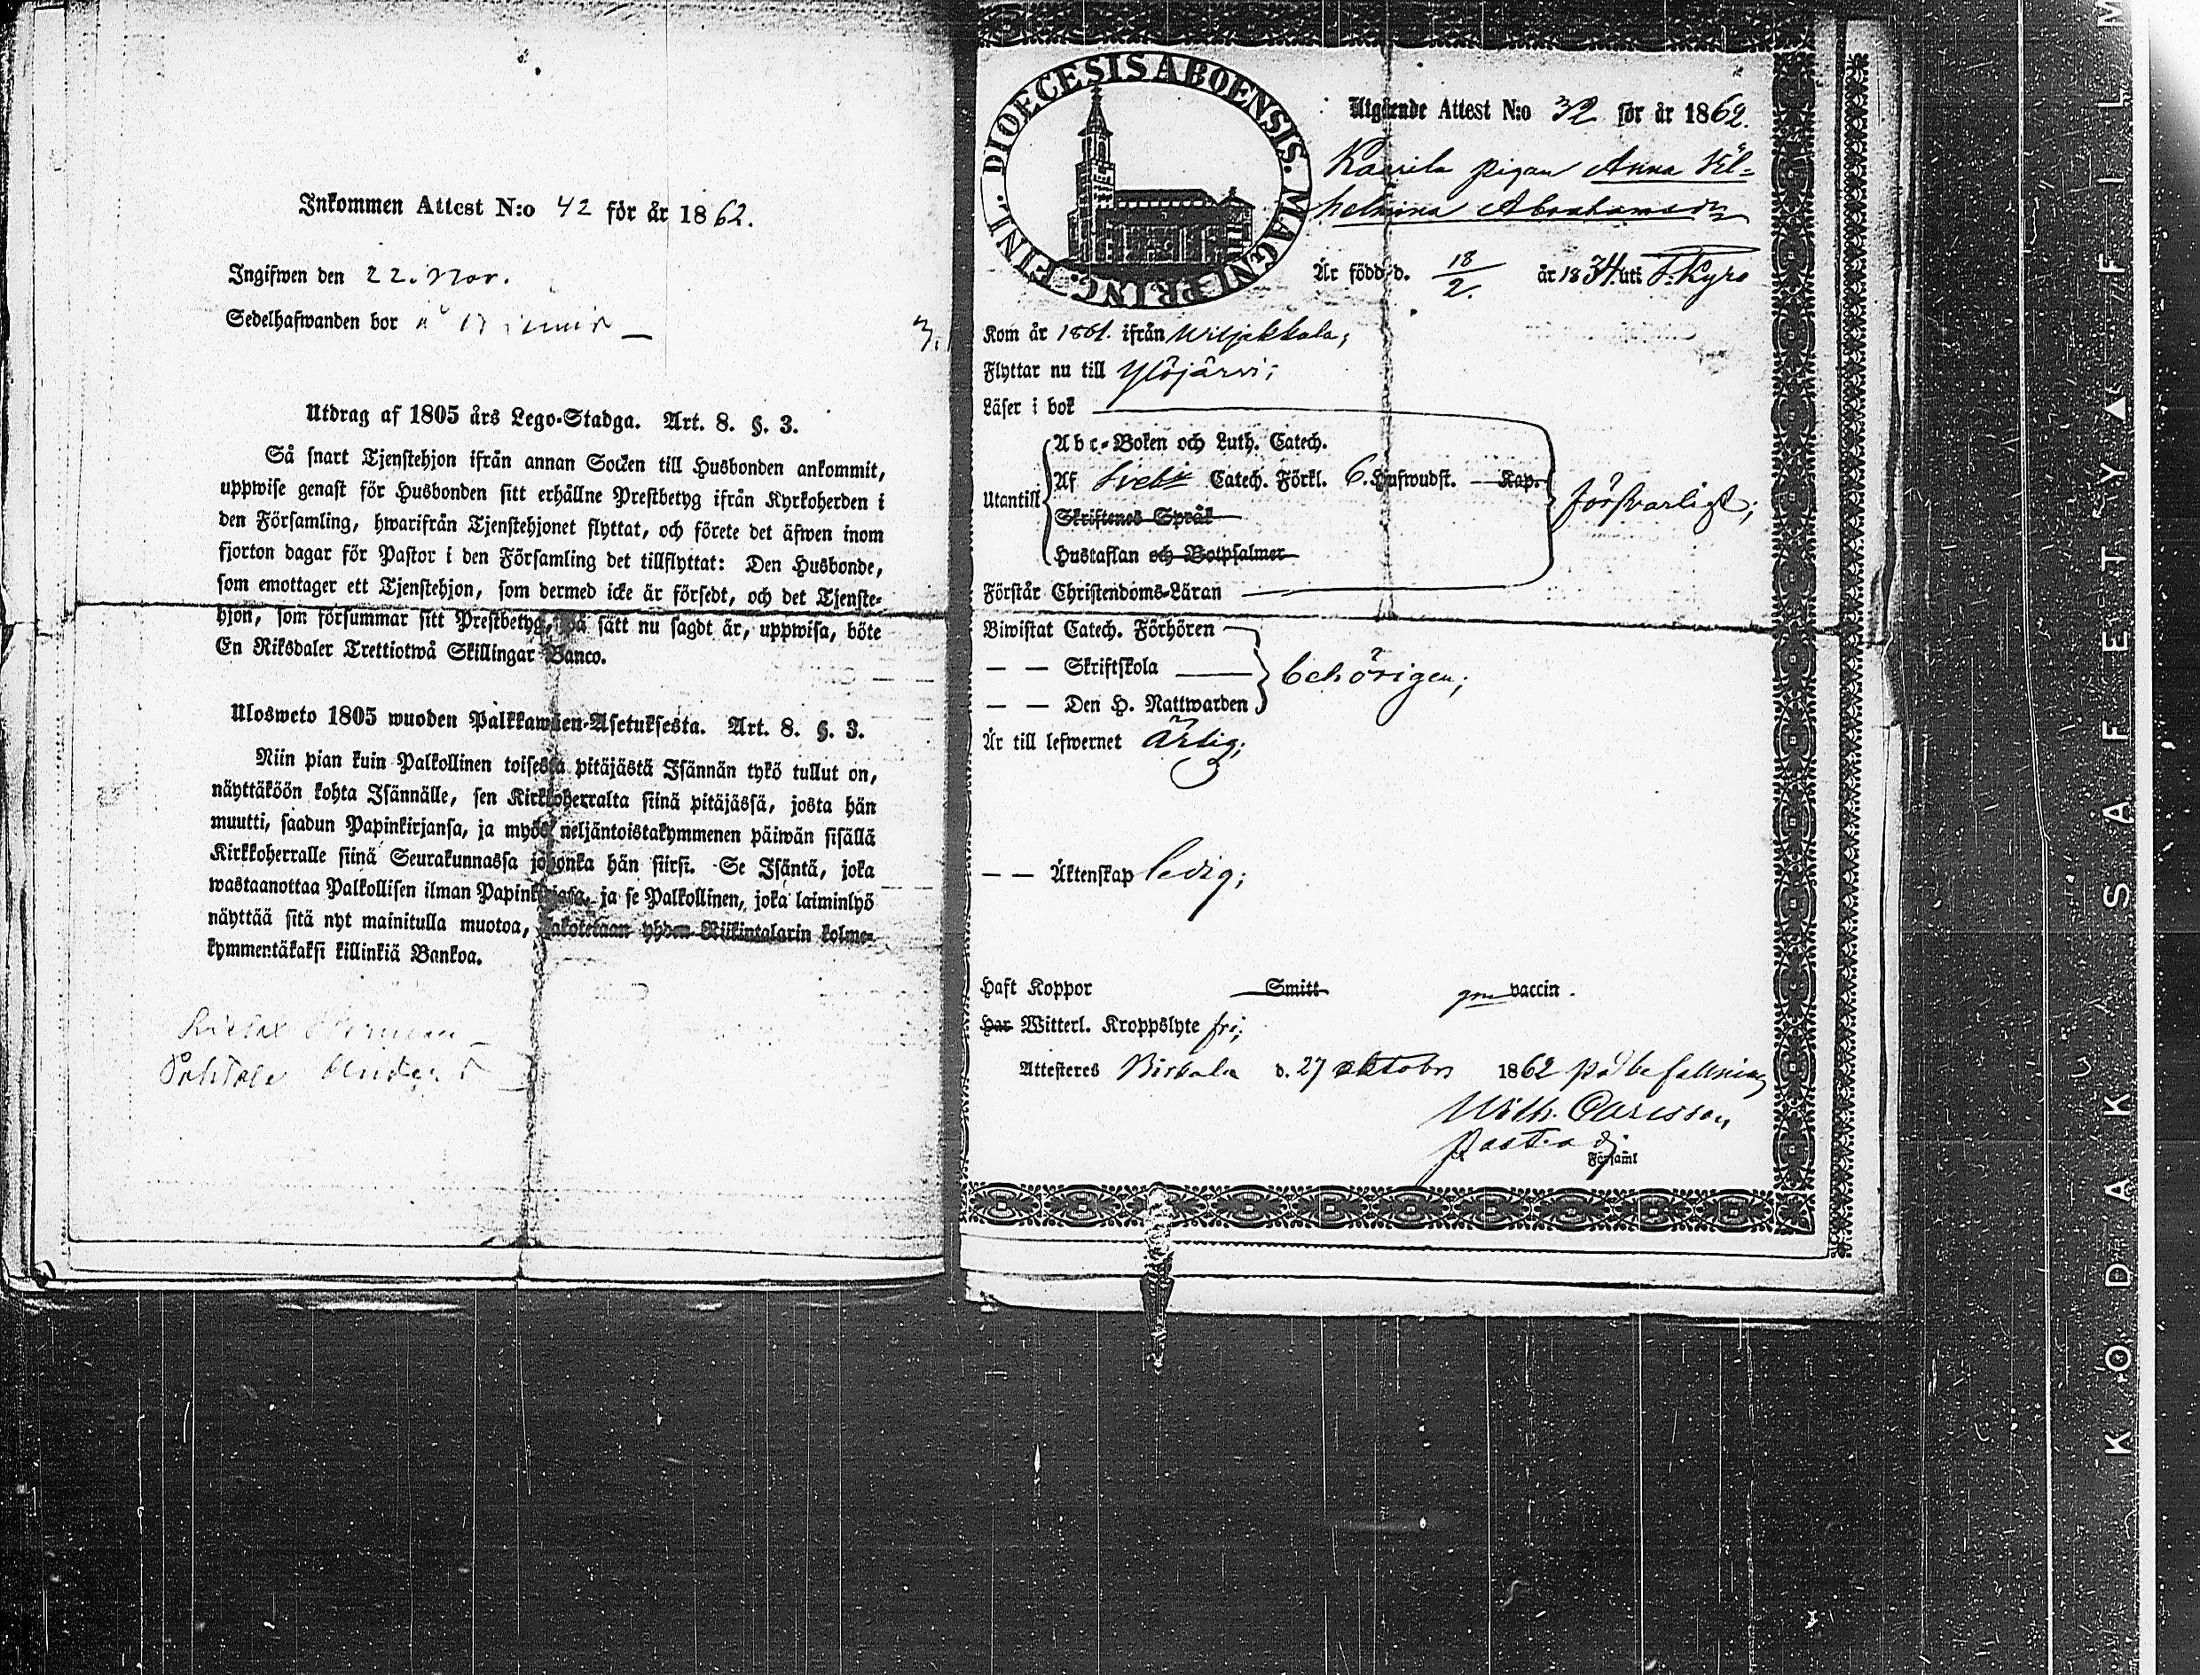 Inkommen Attest N:o 42 för år 1862.
Ingifwen den 22. Nov.
Sedelhafwanden bor å
Utdrag af 1805 års Lego-Stadga. Art. 8. §. 3.
Så snart Tjenstehjon ifrån annan Socken till Husbonden ankommit,
uppwise genast för Husbonden sitt erhållne Prestbetyg ifrån Kyrkoherden i
den Församling, hwarifrån Tjenstehjonet flyttat, och förete det äfwen inom
fjorton dagar för Pastor i den Församling det tillflyttat: Den Husbonde,
som emottager ett Tjenstehjon, som dermed icke är försedt, och det Tjenste-
hjon, som försummar sitt Prestbetyg, på sätt nu sagdt är, uppwisa, böte
En Riksdaler Trettiotwå Skillingar Banco.
Ulosweto 1805 wuoden Palkkawäen-Asetuksesta. Art. 8. §. 3.
Niin pian kuin Palkollinen toisesta pitäjästä Isännän tykö tullut on,
näyttäköön kohta Isännälle, sen Kirkkoherralta siinä pitäjässä, josta hän
muutti, saadun Papinkirjansa, ja myös neljäntoistakymmenen päiwän sisällä
Kirkkoherralle siinä Seurakunnassa johonka hän siirsi. Se Isäntä, joka
wastaanottaa Palkollisen ilman Papinkirjasa, ja se Palkollinen, joka laiminlyö
näyttää sitä nyt mainitulla muotoa, sakotetaan yhden Riikintalarin kolme-
kymmentäkaksi killinkiä Bankoa.
DIOECESIS ABOENSIS. MAGNI PRINC. FINL.
Utgående Attest N:o 32 för år 1862.
pigan Anna Vil-
helmina Abrahamsdr
Är född d. 18/2. år 1834. uti T. Kyro
Kom år 1861. ifrån Wiljakkala;
Flyttar nu till Ylöjärvi;
Läser i bok
Utantill
Abc-Boken och Luth. Catech.
Af Svebi Catech. Förkl. 6. Hufwudst. Kap.
Skriftenes Språk
Hustaflan och Botpsalmer
försvarligt;
Förstår Christendoms-Läran
Biwistat Catech. Förhören
— — Skriftskola
— — Den H. Nattwarden
behörigen;
Är till lefwernet ärlig;
— — Äktenskap ledig;
Haft Koppor Smitt gm vaccin.
Har Witterl. Kroppslyte fri;
Attesteres Birkala d. 27 oktober 1862 på befallning
Wilh. Carlsson,
Past. adj.
Församl
KODAK SAFETY ▲ FILM